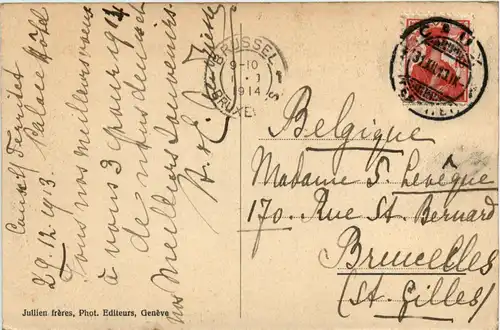 Caux s/ Territet
Palace Hôtel
29.12.1913
Tous nos meilleurs voeux
à vous 3 pour 1914
de nous deux et
nos Meilleurs Souvenirs.
BRUSSEL
9-10
1914
BRUXEL
CAUX
Belgique
Madame S. Levêque
170. Rue St. Bernard
Bruxelles
(St. Gilles)
Jullien frères, Phot. Editeurs, Genève